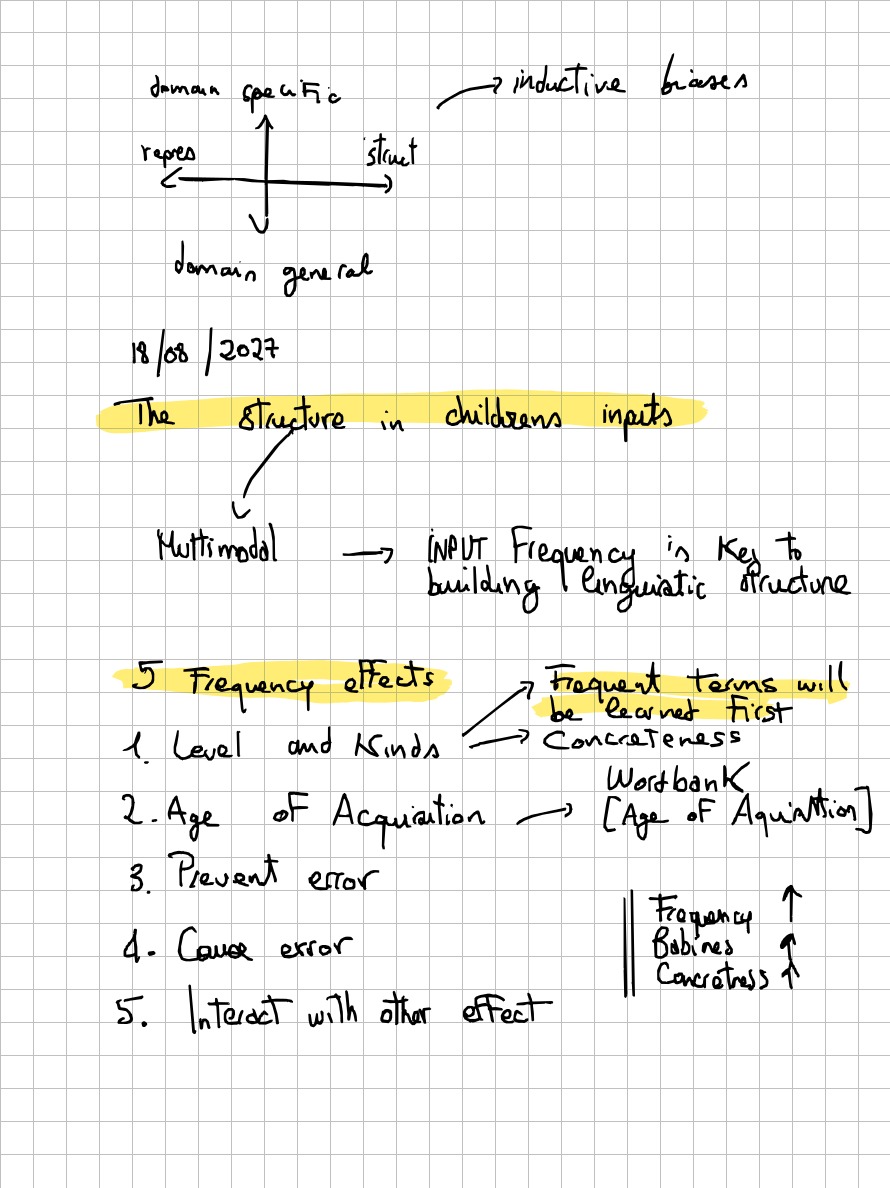 domain specific
inductive biases
repres
struct
domain general
18/08/2027
The structure in childrens inputs
Multimodal → INPUT Frequency is Key to
building linguistic structure
5 Frequency effects
Frequent terms will
be learned First
1. Level and Kinds
Concreteness
Wordbank
2. Age of Acquisition
[Age of Aquisition]
3. Prevent error
4. Cause error
5. Interact with other effect
Frequency ↑
Babines ↑
Concretness ↑